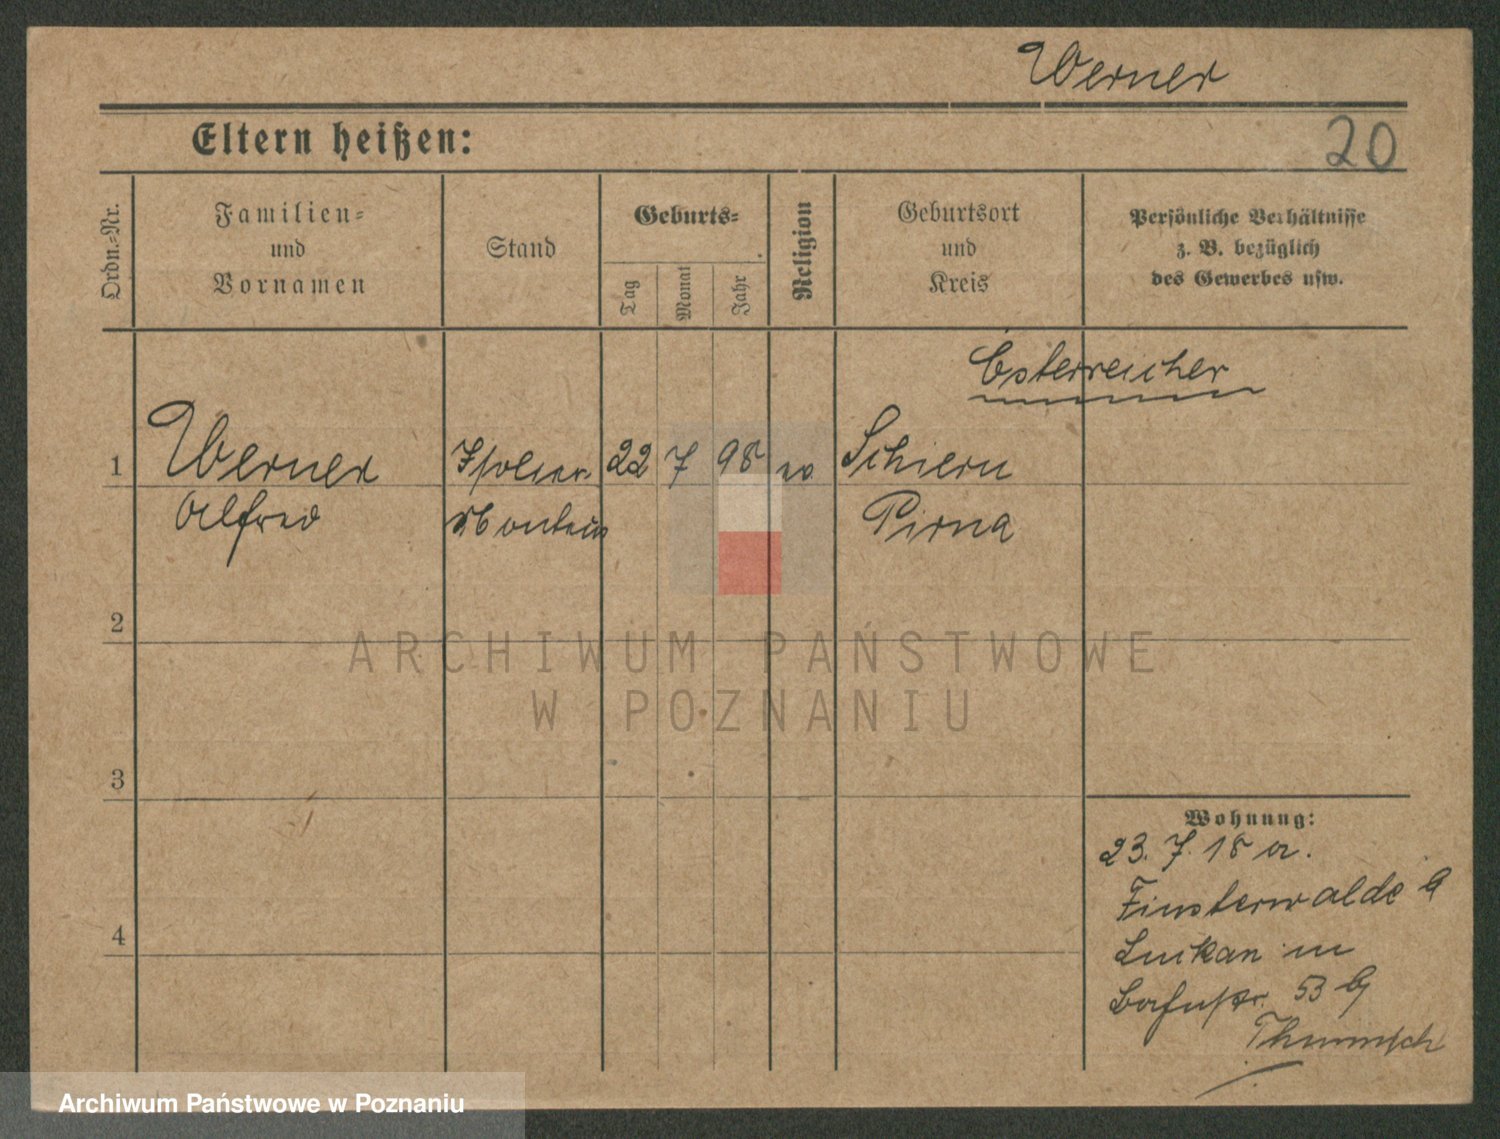 Werner
Eltern heißen:
20
Ordn.-Nr.
Familien-
und
Vornamen
Stand
Geburts-
Tag
Monat
Jahr
Religion
Geburtsort
und
Kreis
Persönliche Verhältnisse
z. B. bezüglich
des Gewerbes usw.
Österreicher
1
Werner
22
7
98
Alfred
Pirna
2
ARCHIWUM PAŃSTWOWE
W POZNANIU
3
4
Wohnung:
23. 7. 18 a.
Finsterwalde
53
Archiwum Państwowe w Poznaniu